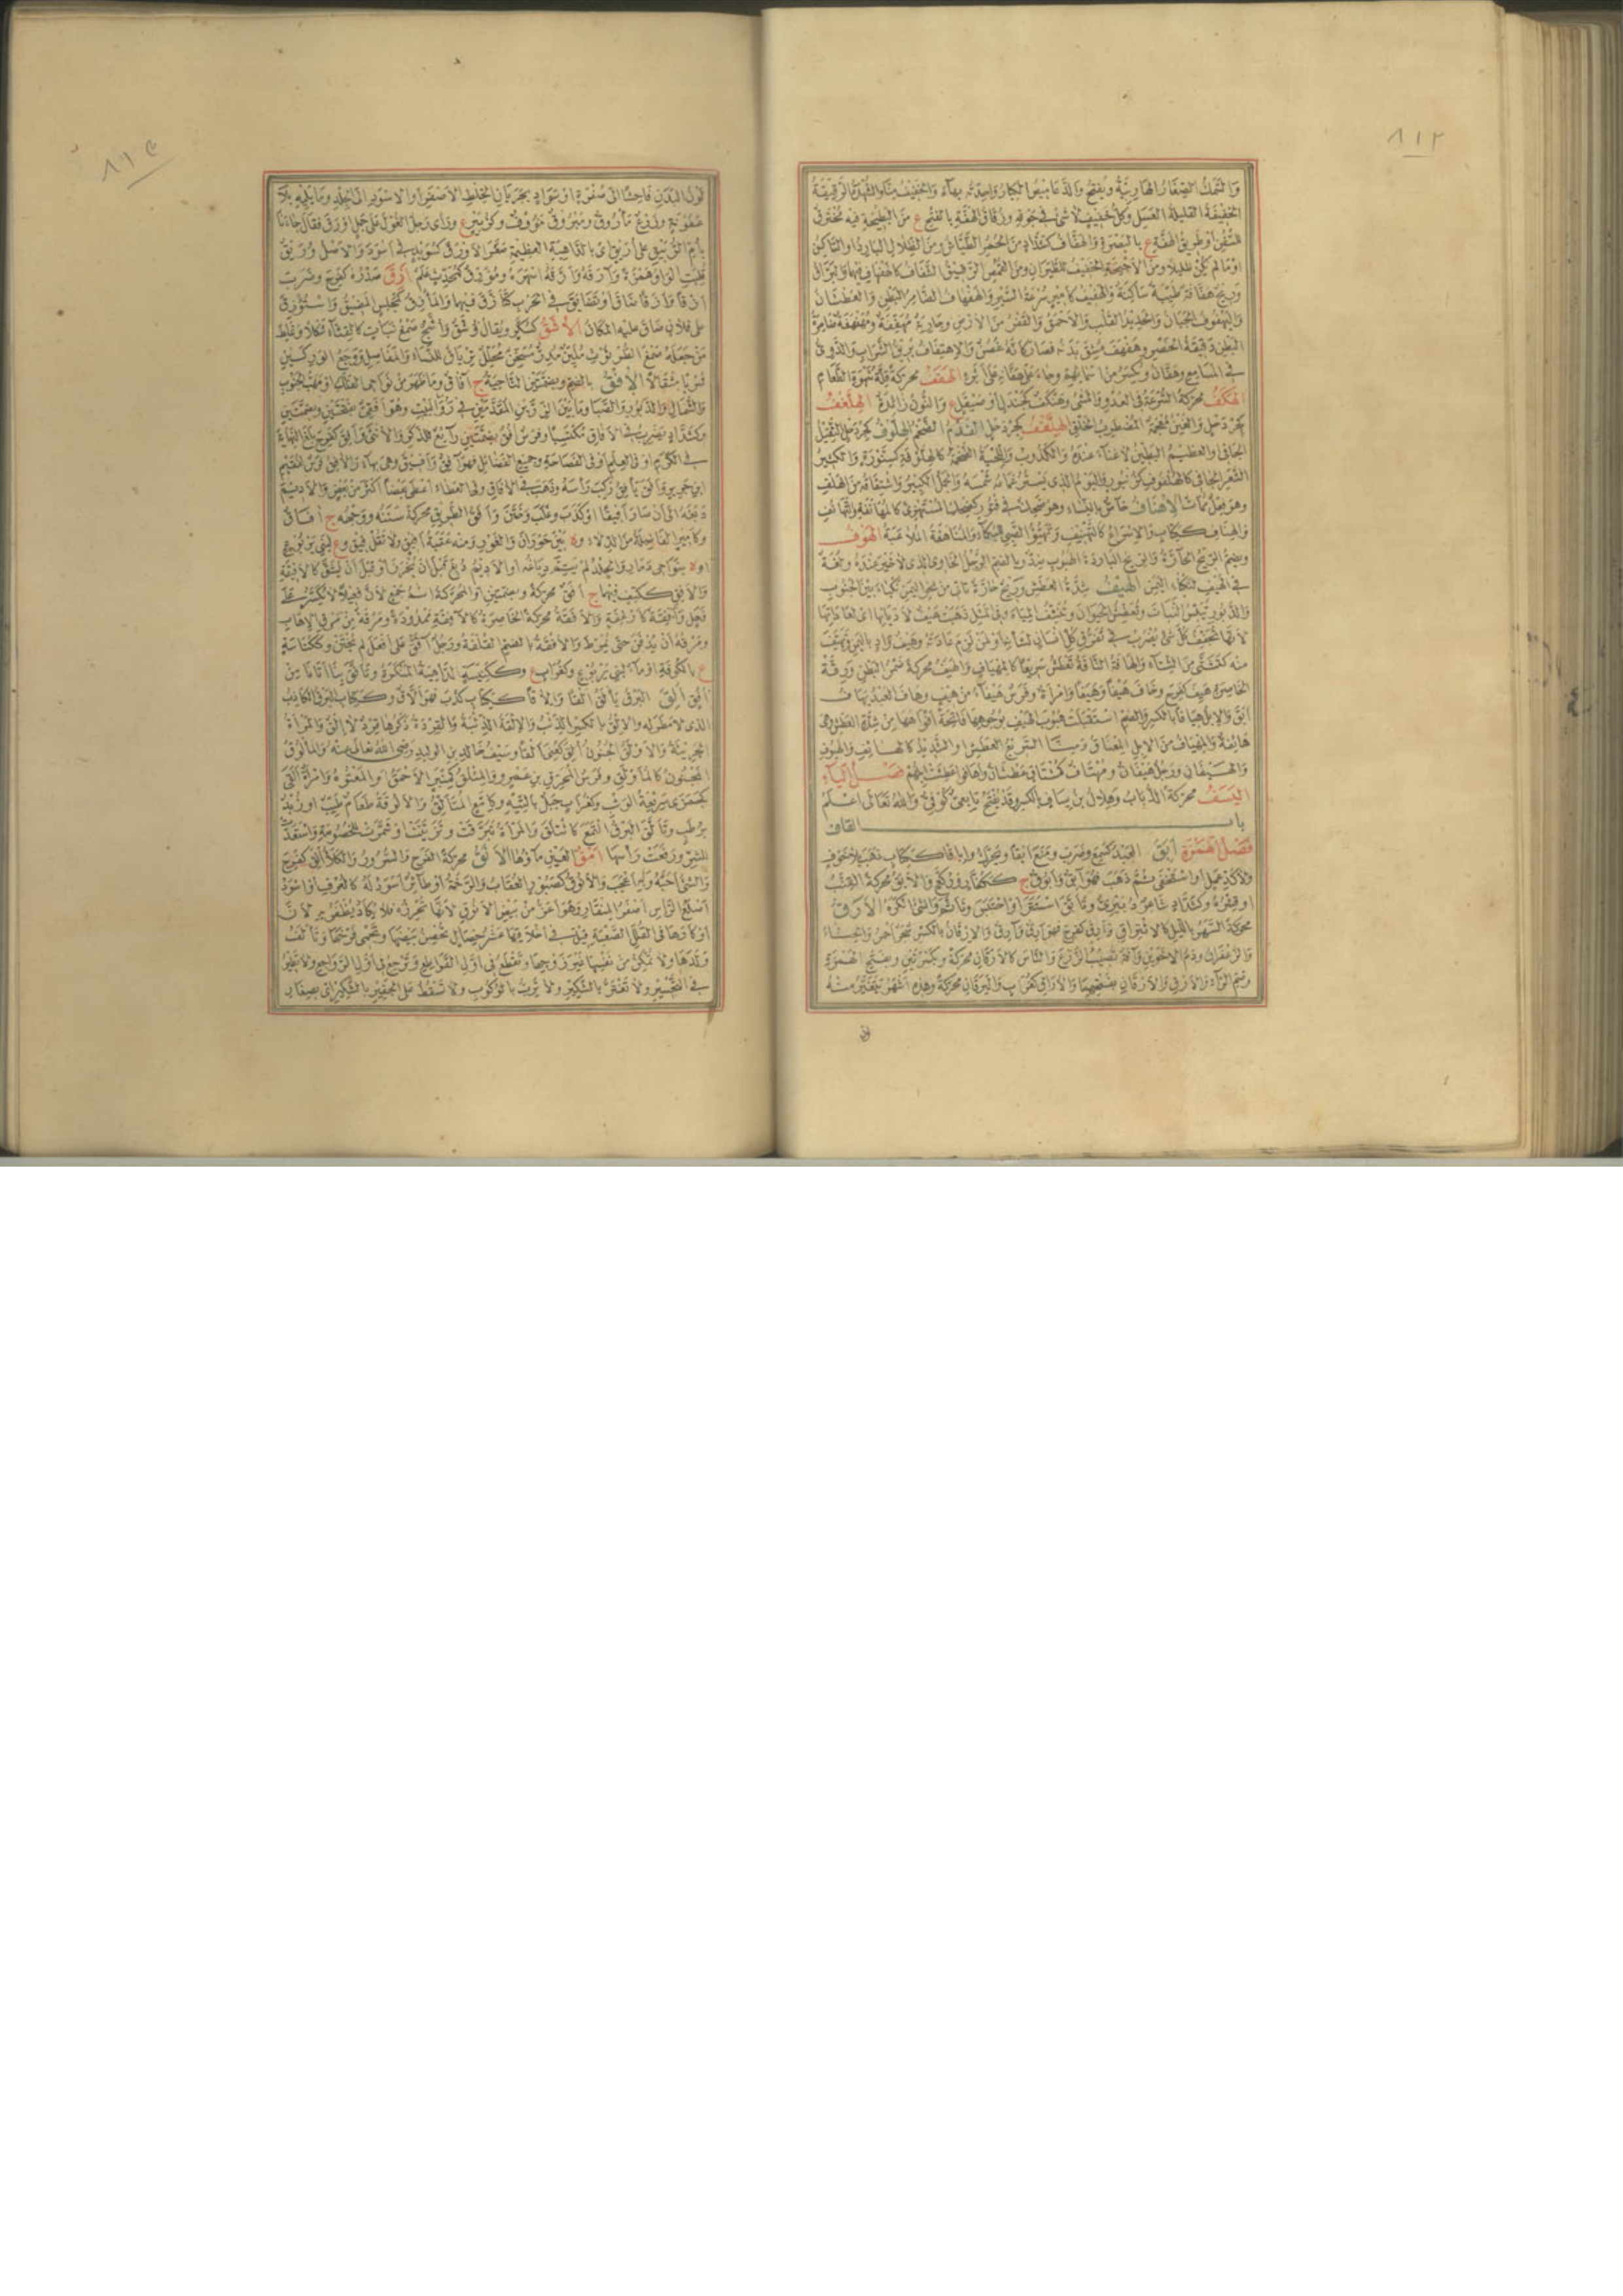 ٨١٢
والسمك الصغار الهاربية ويفتح والدعاميص الكبار واحدته بهاء والخفيف منا والشهدة الرقيقة
الخفيفة القليلة العسل وكل خفيف لا شئ في جوفه وزقاق الهفة بالفتح ع من البطيحة فيه مخترق
للسفن وطريق الهفة ع بالبصرة والهفاف كشداد من الحمر الطياش ومن الظلال البارد او الساكن
او ما لم يكن ظليلا ومن الاجنحة الخفيف للطيران ومن القمص الرقيق الشفاف كالهفهاف فيهما والبراق
وريح هفافة طيبة ساكنة والهفيف كامير سرعة السير والهفهاف الضامر البطن والعطشان
واليهفوف الجبان والحديد القلب والاحمق والقفر من الارض وجارية مهففة ومهفهفة ضامرة
البطن دقيقة الخصر وهفهف مشق بدنه فصار كانه غصن والاهتفاف بريق السراب والدوى
في المسامع وجاء على هفانه على اثره الهقف محركة قلة شهوة الطعام
الهكف محركة السرعة في العدو والمشى وهنكف كجندل او صيقل ع والنون زائدة الهلغف
كجردحل والغين معجمة المضطرب الخلق الهلقف كجردحل الفدم الضخم الهلوف كجردحل الثقيل
الجافى والعظيم البطين لا غناء عنده والكذوب واللحية الضخمة كالهلوفة كسنورة والكثير
الشعر الجافى كالهلفوف كزنبور واليوم الذى يستر غمامه شمسه والجمل الكبير واشتقاقه من الهلف
وهو فعل ممات الاهناف خاص بالنساء وهو ضحك في فتور كضحك المستهزئ كالمهانفة والتهانف
والهناف ككتاب والاسراع كالتهنيف وتهيؤ الصبى للبكاء والمهانفة الملاعبة الهوف
ويضم الريح الحارة والريح الباردة الهبوب ضد وبالضم الرجل الخاوى الذى لا خير عنده ولغة
في الهيف لنكباء اليمن الهيف شدة العطش وريح حارة تاتى من نحو اليمن نكباء بين الجنوب
والدبور تيبس النبات وتعطش الحيوان وتنشف المياه وفي المثل ذهبت هيف لاديانها اى لعاداتها
لانها تجفف كل شئ يضرب في تفرق كل انسان لشانه او لمن لزم عادته وهيف واد باليمن وتهيف
منه كتشتى من الشتاء والهافة الناقة تعطش سريعا كالمهياف والهيف محركة ضمر البطن ورقة
الخاصرة هيف كفرح وخاف هيفا وهيفا وامرأة وفرس هيفاء من هيف وهاف العبد يهاف
ابق والابل هيافا بالكسر والضم استقبلت هبوب الهيف بوجوهها فاتحة افواهها من شدة العطش وهى
هائفة والمهياف من الابل المعناق ومنا السريع العطش والشديده كالهائف والهيوف
والهيفان ورجل هيفان ومهتاف كمشتاق عطشان واهافوا عطشت ابلهم فصل الياء
اليسف محركة الذباب وهلال بن يساف بالكسر وقد يفتح تابعى كوفى والله تعالى اعلم
باب القاف
فصل الهمزة ابق العبد كسمع وضرب ومنع ابقا ويحرك واباقا ككتاب ذهب بلا خوف
ولا كد عمل او استخفى ثم ذهب فهو آبق وابوق ج ككفار وركع والابق محركة القنب
او قشره وكشداد شاعر دبيرى وتابق استتر او احتبس وتاثم والشئ انكره الارق
محركة السهر بالليل كالائتراق وارق كفرح فهو ارق وآرق والارقان بالكسر شجر احمر والحناء
والزعفران ودم الاخوين وآفة تصيب الزرع والناس كالارقان محركة وبكسرتين وبفتح الهمزة
وضم الراء والارق والارقان بفتحهما والاراق كغراب واليرقان محركة وهذه اشهر يتغير منه
لون
٨١٣
لون البدن فاحشا الى صفرة او سواد بجريان الخلط الاصفر او الاسود الى الجلد وما يليه بلا
عفونة وزرع ماروق وميروق مؤوف وكزبير ع وراى رجل الغول على جمل اورق فقال جاءنا
بام الربيق على اريق اى بالداهية العظيمة صغر الاورق كسويد في اسود والاصل وريق
قلبت الواو همزة وآرقه وارقه اسهره ومؤرق كمحدث علم ازق صدره كفرح وضرب
ازقا وازقا ضاق او تضايق في الحرب كتازق فيهما والمازق كمجلس المضيق واستؤزق
على فلان ضاق عليه المكان الاشق كسكر ويقال وشق واشج صمغ نبات كالقثاء شكلا وغلط
من جعله صمغ الطرثوث ملين مدر مسخن محلل ترياق للنساء والمفاصل ووجع الوركين
شربا مثقالا الافق بالضم وبضمتين الناحية ج آفاق وما ظهر من نواحى الفلك او مهب الجنوب
والشمال والدبور والصبا وما بين الزرين المقدمين في رواق البيت وهو افقى بفتحتين وبضمتين
وكشداد يضرب في الآفاق مكتسبا وفرس افق بضمتين رائع للذكر والانثى وافق كفرح بلغ النهاية
في الكرم او في العلم او في الفصاحة وجميع الفضائل فهو آفق وافيق وهى بهاء والآفق فرس لفقيم
ابن جرير وافق يافق ركب راسه وذهب في الآفاق وفي العطاء اعطى بعضا اكثر من بعض والاديم
دبغه الى ان صار افيقا او كذب وغلب وختن وافق الطريق محركة سننه ووجهه ج آفاق
وكامير الفاضلة من الدلاء و بين حوران والغور ومنه عقبة افيق ولا تقل فيق وع لبنى يربوع
او ه بنواحى ذمار والجلد لم يتم دباغه او الاديم دبغ قبل ان يخرز او قبل ان يشق كالافيقة
والافق ككتف فيهما ج افق محركة وبضمتين او المحركة اسم جمع لان فعيلا لا يكسر على
فعل وآفقة كارغفة والافقة محركة الخاصرة كالآفقة ممدودة ومرقة من مرق الاهاب
ومرقه ان يدفن حتى يمرط والافقة بالضم القلفة ورجل آفق على افعل لم يختن وككناسة
ع بالكوفة او ماء لبنى يربوع وكغراب ع وككنيسة الداهية المنكرة وتافق بنا اتانا من
افق الق البرق يالق القا والاقا ككتاب كذب فهو الاق وككتاب البرق الكاذب
الذى لا مطر له والالق بالكسر الذئب والالقة الذئبة والقردة ذكرها قرد لا الق والمرأة
الجريئة والاولق الجنون الق كعنى القا وسيف خالد بن الوليد رضى الله تعالى عنه والمالوق
المجنون كالماولق وفرس المحرق بن عمرو والمئلق كمنبر الاحمق او المعتوه وامرأة القى
كجمزى سريعة الوثب وكغراب جبل بالتيه وكامع المتالق والالوقة طعام طيب او زبد
برطب وتالق البرق التمع كائتلق والمرأة تبرقت وتزينت او شمرت للخصومة واستعدت
للشر ورفعت راسها امق العين ماقها الانق محركة الفرح والسرور والكلا انق كفرح
والشئ احبه وبه اعجب والانوق كصبور العقاب والرخمة او طائر اسود له كالعرف او اسود
اصلع الراس اصفر المنقار وهو اعز من بيض الانوق لانها تحرزه فلا يكاد يظفر به لان
اوكارها في القلل الصعبة قيل في اخلاقها عشر خصال تحضن بيضها وتحمى فرخها وتالف
ولدها ولا تمكن من نفسها غير زوجها وتقطع في اول القواطع وترجع في اول الرواجع ولا تطير
في التحسير ولا تغتر بالشكير ولا ترب بالوكور ولا تسقط على الجفير بالشكير اى بصغار